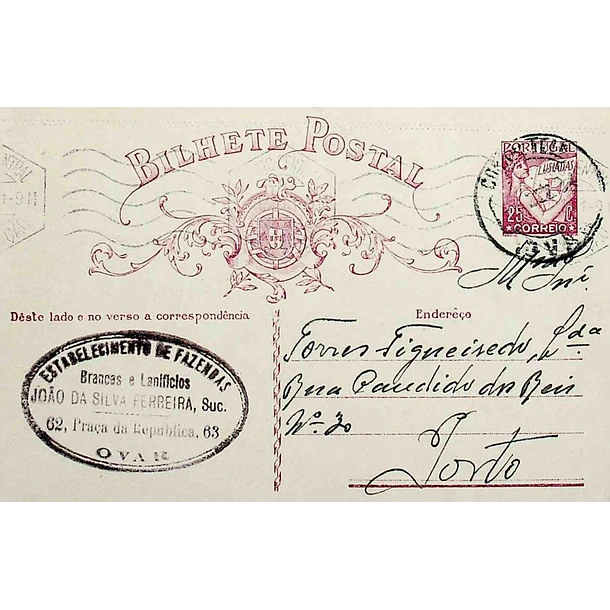 BILHETE POSTAL
PORTUGAL
LUSIADAS
25 C.
CORREIO
1-9 M
OVAR
Déste lado e no verso a correspondência
Enderêço
ESTABELECIMENTO DE FAZENDAS
Brancas e Lanificios
JOÃO DA SILVA FERREIRA, Suc.
62, Praça da República, 63
OVAR
Torres Figueiredo, Lda
Rua Candido dos Reis
Nº 30
Porto